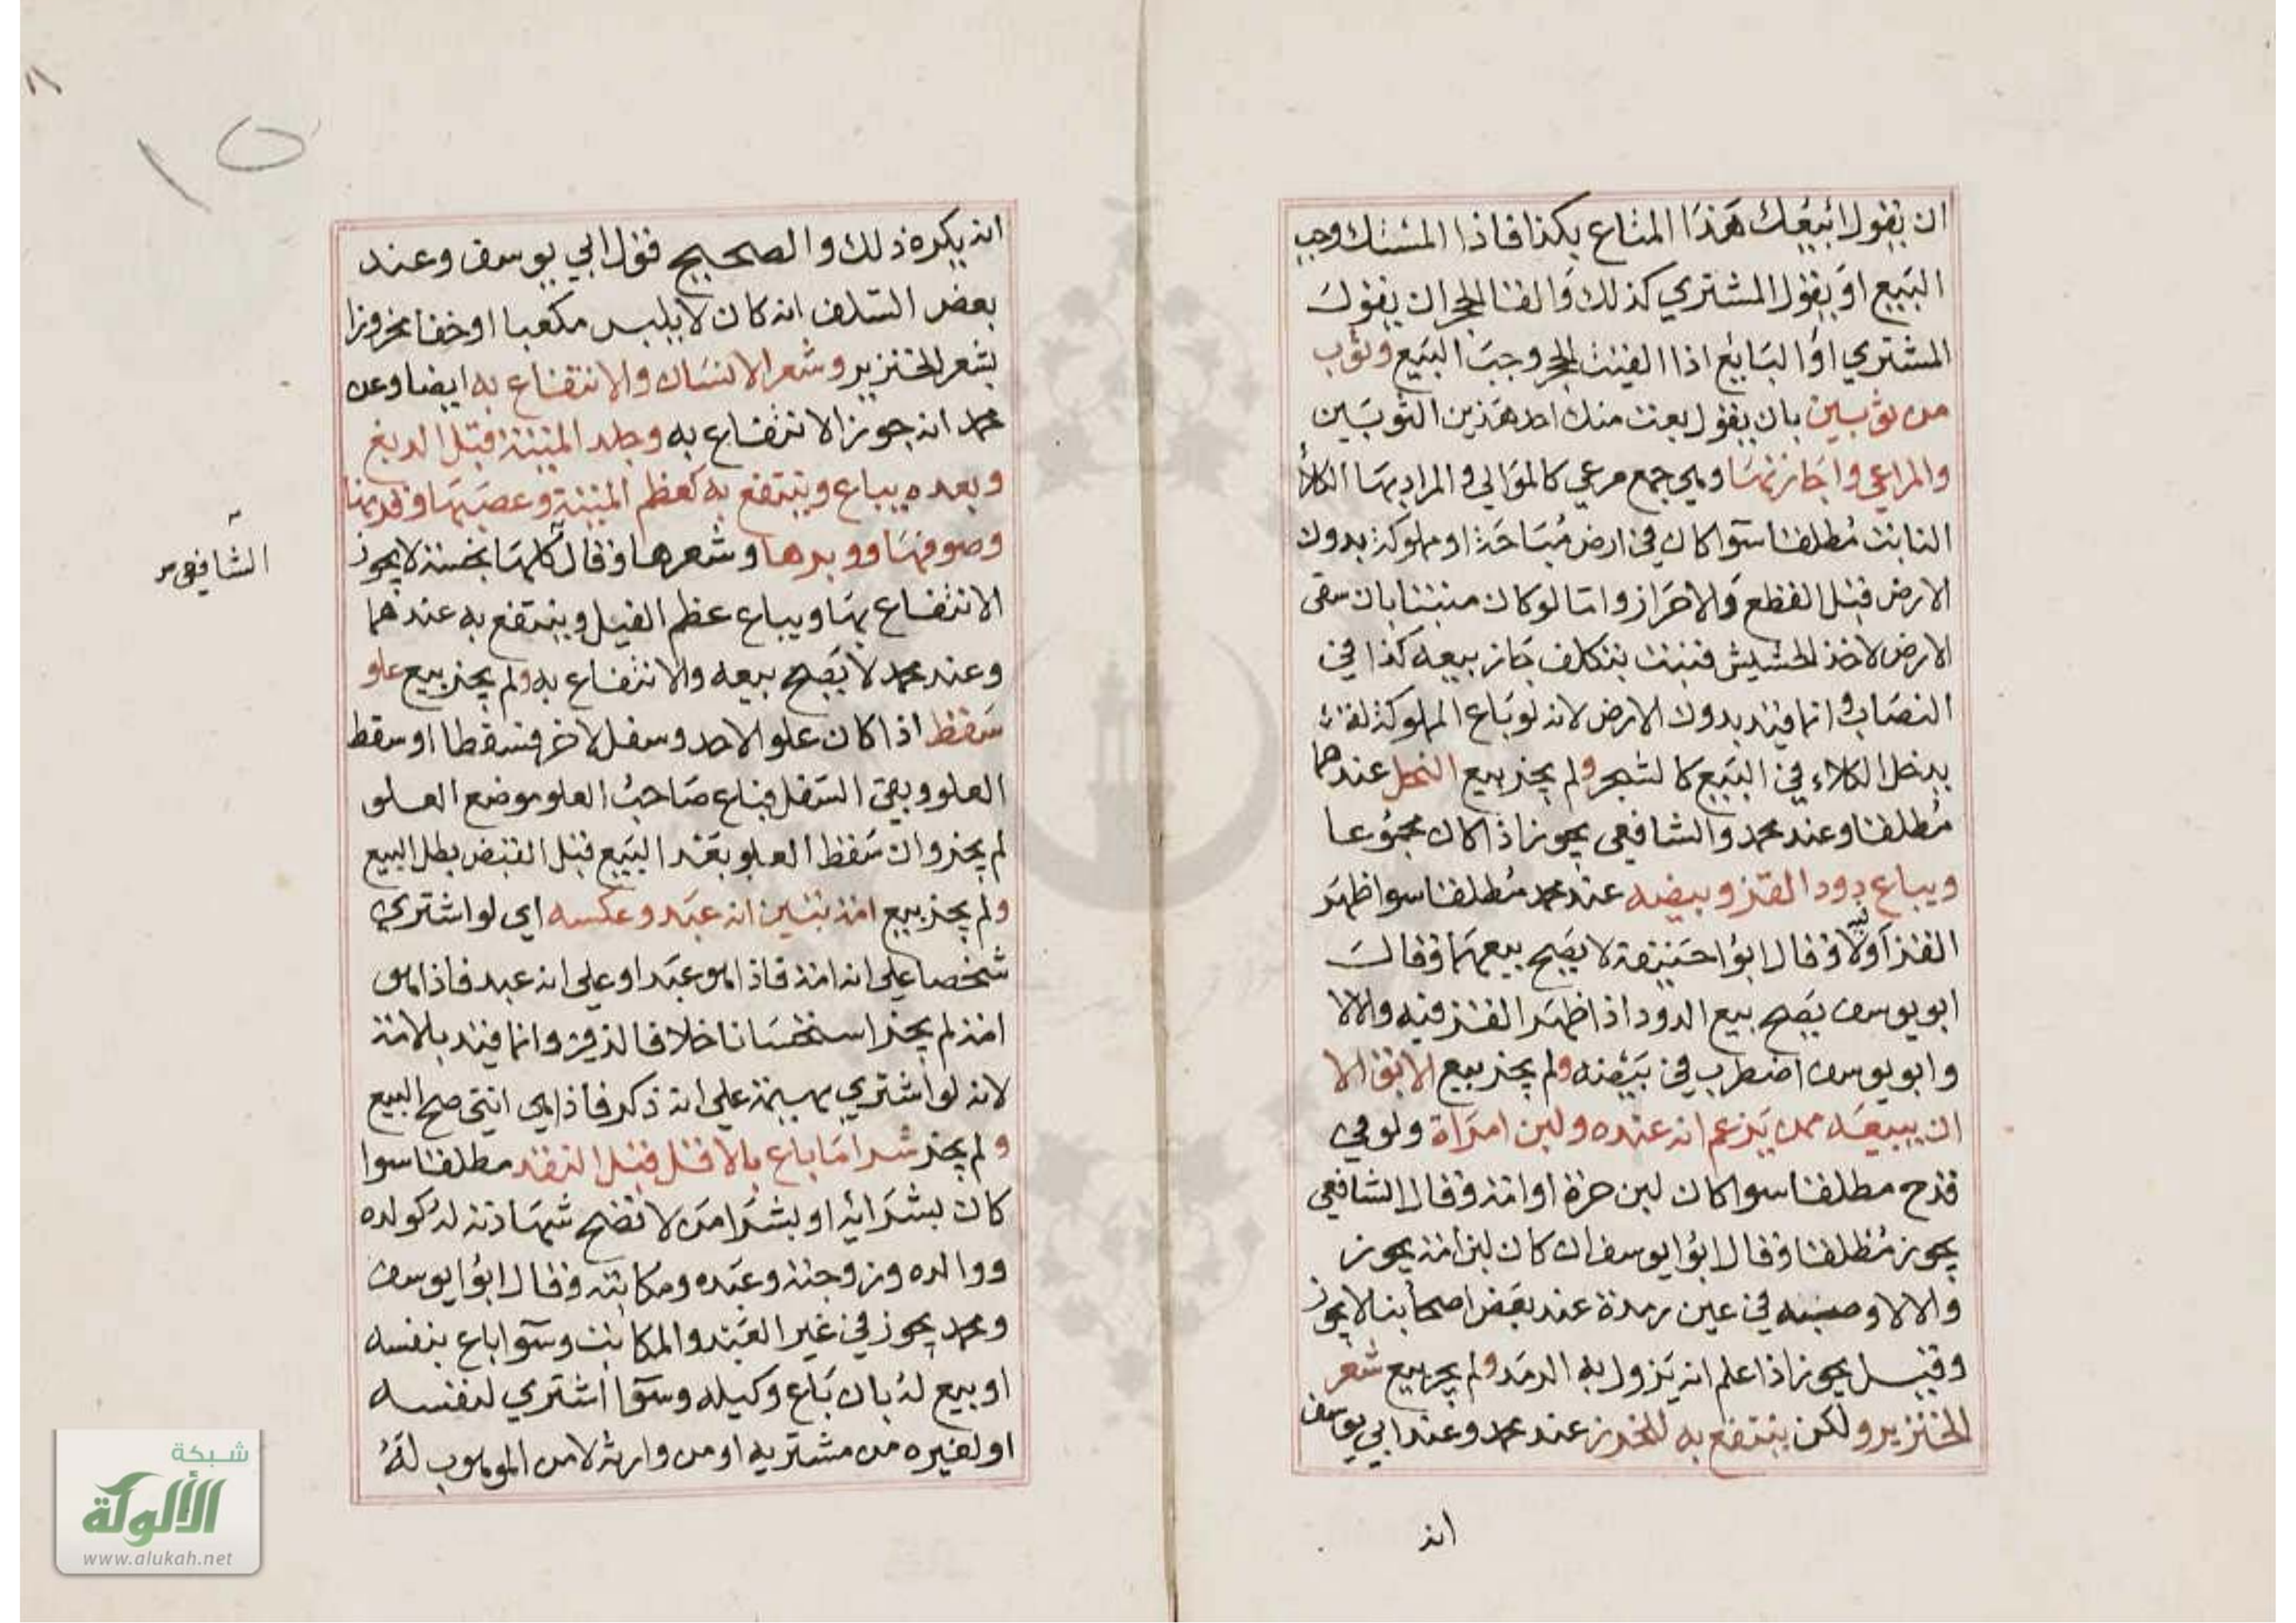 ان يقول ابيعك هذا المتاع بكذا فاذا المستك وجب
البيع او يقول المشتري كذلك والقا الحجر ان يقول
المشتري او البايع اذا القيت الحجر وجب البيع وثوب
من ثوبين بان يقول بعت منك احد هذين الثوبين
والمراعي واجازتها وهي جمع مرعي كالموالي والمراد بها الكلأ
النابت مطلقا سوا كان في ارض مباحة او مملوكة بدون
الارض قبل القطع والاحراز واما لو كان منبتا بان سقى
الارض لاخذ الحشيش فنبت بتكلف جاز بيعه كذا في
النصاب وانما قيد بدون الارض لانه لو باع المملوكة لقائه
يدخل الكلاء في البيع كالشجر ولم يجز بيع النحل عندهما
مطلقا وعند محمد والشافعي يجوز اذا كان مجموعا
ويباع دود القز وبيضه عند محمد مطلقا سوا ظهر
القز اولا وقال ابوا حنيفة لا يصح بيعهما وقال
ابو يوسف يصح بيع الدود اذا ظهر القز فيه والا لا
وابو يوسف اضطرب في بيضه ولم يجز بيع الابق الا
ان يبيعه ممن يزعم انه عنده ولبن امراة ولو في
قدح مطلقا سوا كان لبن حرة او امة وقال الشافعي
يجوز مطلقا وقال ابوا يوسف ان كان لبن امة يجوز
والا لا وصبه في عين رمدة عند بعض اصحابنا لا يجوز
وقيل يجوز اذا علم انه يزول به الرمد ولم يجز بيع شعر
الخنزير ولكن ينتفع به للخرز عند محمد وعند ابي يوسف
انه
١٥
انه يكره ذلك والصحيح قول ابي يوسف وعند
بعض السلف انه كان لا يلبس مكعبا او خفا مخروزا
بشعر الخنزير وشعر الانسان والانتفاع به ايضا وعن
محمد انه جوز الانتفاع به وجلد الميتة قبل الدبغ
وبعده يباع وينتفع به كعظم الميتة وعصبها وقرنها
وصوفها ووبرها وشعرها وقال كلها نجسة لا يجوز
الشافعي
الانتفاع بها ويباع عظم الفيل وينتفع به عندهما
وعند محمد لا يصح بيعه والانتفاع به ولم يجز بيع علو
سقط اذا كان علو لاحد وسفل لاخر فسقطا او سقط
العلو وبقي السفل فباع صاحب العلو موضع العلو
لم يجز وان سقط العلو بعد البيع قبل القبض بطل البيع
ولم يجز بيع امة تبين انه عبد وعكسه اي لو اشتري
شخصا علي انه امة فاذا هو عبد او علي انه عبد فاذا هو
امة لم يجز استحسانا خلافا لزفر وانما قيد بالامة
لانه لو اشتري بهيمة علي انه ذكر فاذا هي انثي صح البيع
ولم يجز شرا ما باع بالاقل قبل النقد مطلقا سوا
كان بشرائه او بشرا من لا تصح شهادته له كولده
ووالده وزوجته وعبده ومكاتبه وقال ابوا يوسف
ومحمد يجوز في غير العبد والمكاتب وسوا باع بنفسه
او بيع له بان باع وكيله وسوا اشتري لنفسه
او لغيره من مشتريه او من وارثه لا من الموهوب له
شبكة
الألوكة
www.alukah.net